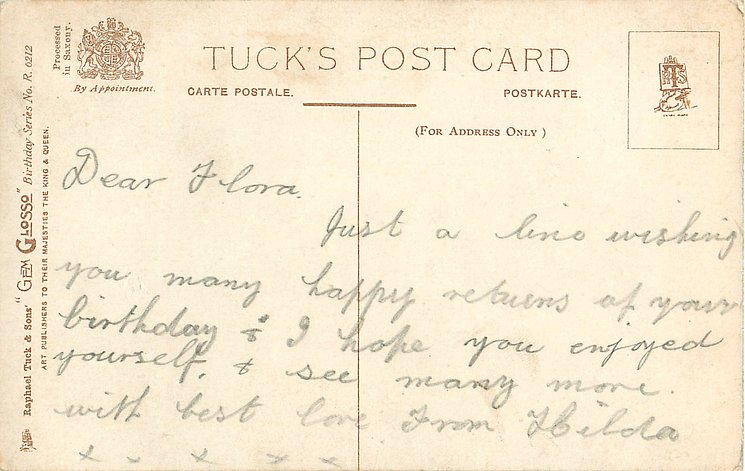 Processed
in Saxony.
By Appointment.
TUCK'S POST CARD
CARTE POSTALE.
POSTKARTE.
(FOR ADDRESS ONLY)
Raphael Tuck & Sons' "GEM GLOSSO" Birthday Series No. R. 0212
ART PUBLISHERS TO THEIR MAJESTIES THE KING & QUEEN.
Dear Flora.
Just a line wishing
you many happy returns of your
birthday & I hope you enjoyed
yourself, & see many more.
with best love From Hilda
x x x x x